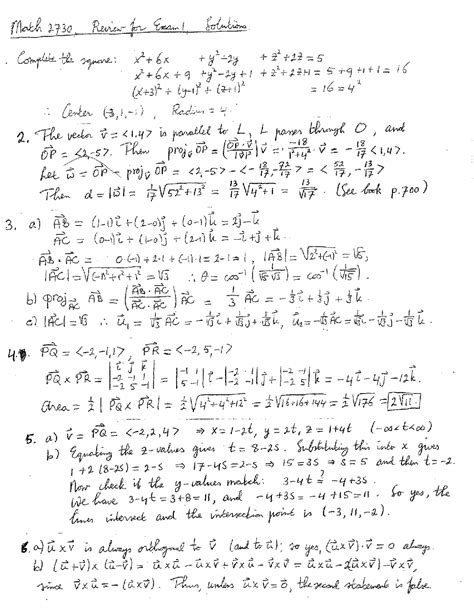 Math 2730. Review for Exam 1 Solutions
. Complete the square: x² + 6x + y² - 2y + z² + 2z = 5
x² + 6x + 9 + y² - 2y + 1 + z² + 2z + 1 = 5 + 9 + 1 + 1 = 16
(x+3)² + (y-1)² + (z+1)² = 16 = 4²
∴ Center (-3, 1, -1), Radius = 4.
2. The vector v⃗ = <1,4> is parallel to L, L passes through O, and
OP⃗ = <2,-5>. Then proj_v⃗ OP⃗ = (OP⃗·v⃗/|v⃗|²) v⃗ = -18/(1²+4²) · v⃗ = -18/17 <1,4>.
Let w⃗ = OP⃗ - proj_v⃗ OP⃗ = <2,-5> - <-18/17, -72/17> = <52/17, -13/17>
Then d = |w⃗| = 1/17 √(52²+13²) = 13/17 √(4²+1) = 13/√17. (See book p.700)
3. a) AB⃗ = (1-1)i⃗ + (2-0)j⃗ + (0-1)k⃗ = 2j⃗ - k⃗
AC⃗ = (0-1)i⃗ + (1-0)j⃗ + (2-1)k⃗ = -i⃗ + j⃗ + k⃗.
AB⃗·AC⃗ = 0·(-1) + 2·1 + (-1)·1 = 2-1 = 1, |AB⃗| = √(2²+(-1)²) = √5,
|AC⃗| = √(1²+1²+1²) = √3 ∴ θ = cos⁻¹(1/(√5√3)) = cos⁻¹(1/√15).
b) proj_AC⃗ AB⃗ = (AB⃗·AC⃗/AC⃗·AC⃗) AC⃗ = 1/3 AC⃗ = -1/3 i⃗ + 1/3 j⃗ + 1/3 k⃗.
c) |AC⃗| = √3 ∴ u⃗₁ = 1/√3 AC⃗ = -1/√3 i⃗ + 1/√3 j⃗ + 1/√3 k⃗, u⃗₂ = -1/√3 AC⃗ = 1/√3 i⃗ - 1/√3 j⃗ - 1/√3 k⃗.
4. PQ⃗ = <-2,-1,1>, PR⃗ = <-2,5,-1>
PQ⃗ × PR⃗ = |i⃗ j⃗ k⃗; -2 -1 1; -2 5 -1| = |-1 1; 5 -1| i⃗ - |-2 1; -2 -1| j⃗ + |-2 -1; -2 5| k⃗ = -4i⃗ - 4j⃗ - 12k⃗.
Area = 1/2 |PQ⃗ × PR⃗| = 1/2 √(4²+4²+12²) = 1/2 √(16+16+144) = 1/2 √176 = 2√11.
5. a) v⃗ = PQ⃗ = <-2,2,4> ⇒ x = 1-2t, y = 2t, z = 1+4t (-∞<t<∞)
b) Equating the z-values gives t = 8-2s. Substituting this into x gives
1 + 2(8-2s) = 2-s ⇒ 17-4s = 2-s ⇒ 15 = 3s ⇒ s = 5 and then t = -2.
Now check if the y-values match: 3-4t = -4+3s.
We have 3-4t = 3+8 = 11, and -4+3s = -4+15 = 11. So yes, the
lines intersect and the intersection point is (-3, 11, -2).
6. a) u⃗×v⃗ is always orthogonal to v⃗ (and to u⃗); so yes, (u⃗×v⃗)·v⃗ = 0 always.
b) (u⃗+v⃗) × (u⃗-v⃗) = u⃗×u⃗ - u⃗×v⃗ + v⃗×u⃗ - v⃗×v⃗ = u⃗×u⃗ - 2(u⃗×v⃗) - v⃗×v⃗,
since v⃗×u⃗ = -(u⃗×v⃗). Thus, unless u⃗×v⃗ = 0, the second statement is false.